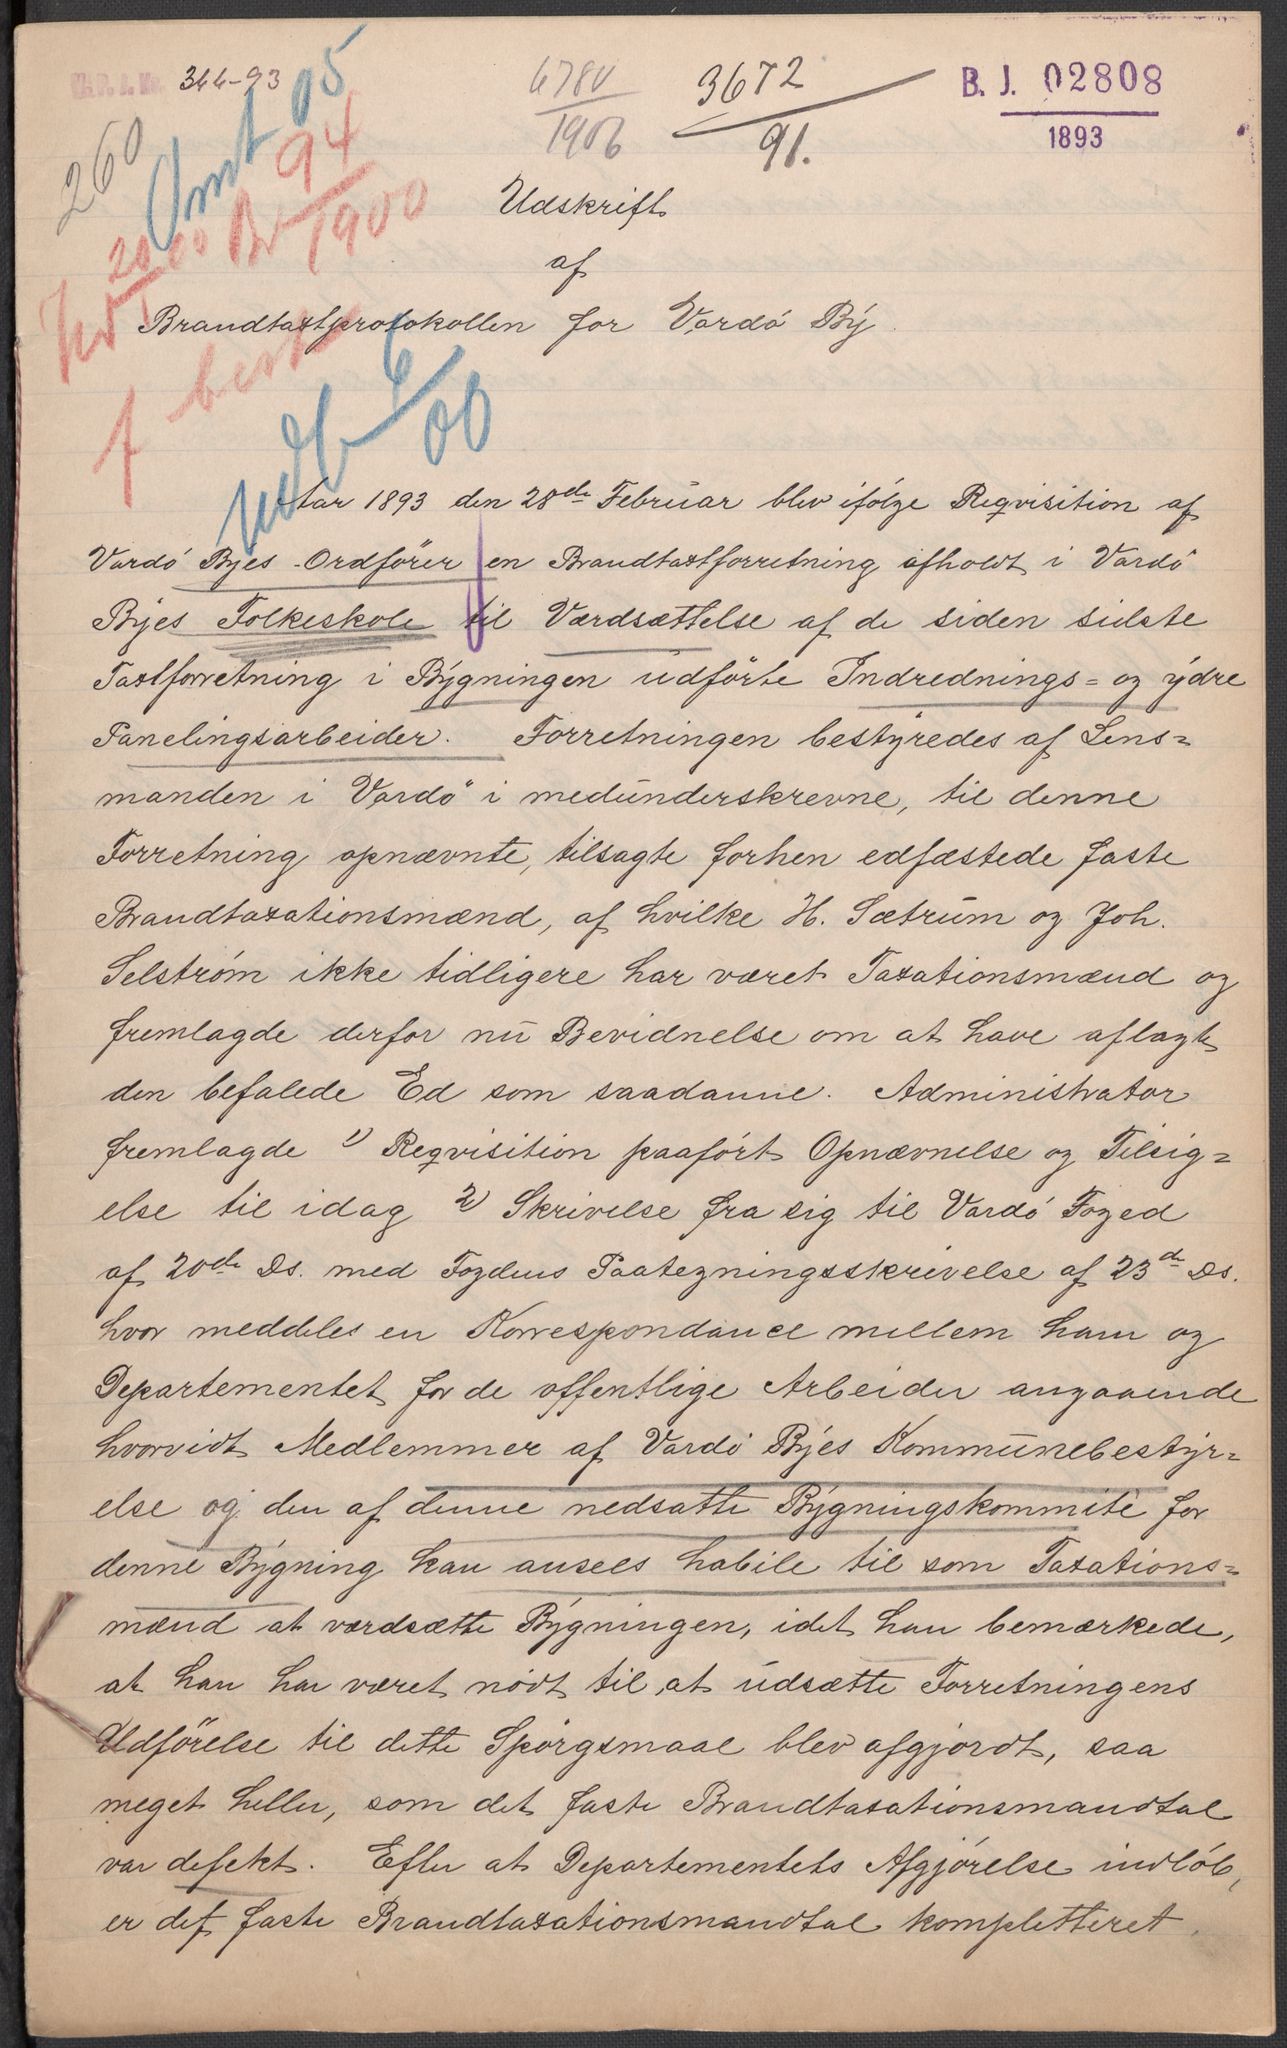 344-93
6780
1906
3672
91.
B. J. 02808
1893
260
Omt 05
94
1900
Udskrift
af
Brandtaxtprotokollen for Vardö By.
Aar 1893 den 28de Februar blev ifölge Reqvisition af
Vardö Byes Ordförer en Brandtaxtforretning afholdt i Vardö
Byes Folkeskole til Værdsættelse af de siden sidste
Taxtforretning i Bygningen udförte Indrednings= og ydre
Panelingsarbeider. Forretningen bestyredes af Lens=
manden i Vardö i medunderskrevne, til denne
Forretning opnævnte, tilsagte forhen edfæstede faste
Brandtaxationsmænd, af hvilke H. Sætrum og Joh.
Selström ikke tidligere har været Taxationsmænd og
fremlagde derfor nu Bevidnelse om at have aflagt
den befalede Ed som saadanne. Administrator
fremlagde 1) Reqvisition paafört Opnævnelse og Tilsig=
else til idag 2) Skrivelse fra sig til Vardö Foged
af 20de Ds. med Fogdens Paategningsskrivelse af 23de Ds.
hvor meddeles en Korrespondance mellem ham og
Departementet for de offentlige Arbeider angaaende
hvorvidt Medlemmer af Vardö Byes Kommunebestyr=
else og den af denne nedsatte Bygningskommite for
denne Bygning kan ansees habile til som Taxations=
mænd at værdsætte Bygningen, idet han bemærkede,
at han har været nödt til at udsætte Forretningens
Udförelse til dette Spörgsmaal blev afgjordt, saa
meget heller, som det faste Brandtaxationsmandtal
var defekt. Efter at Departementets Afgjörelse indlöb,
er det faste Brandtaxationsmandtal kompletteret.